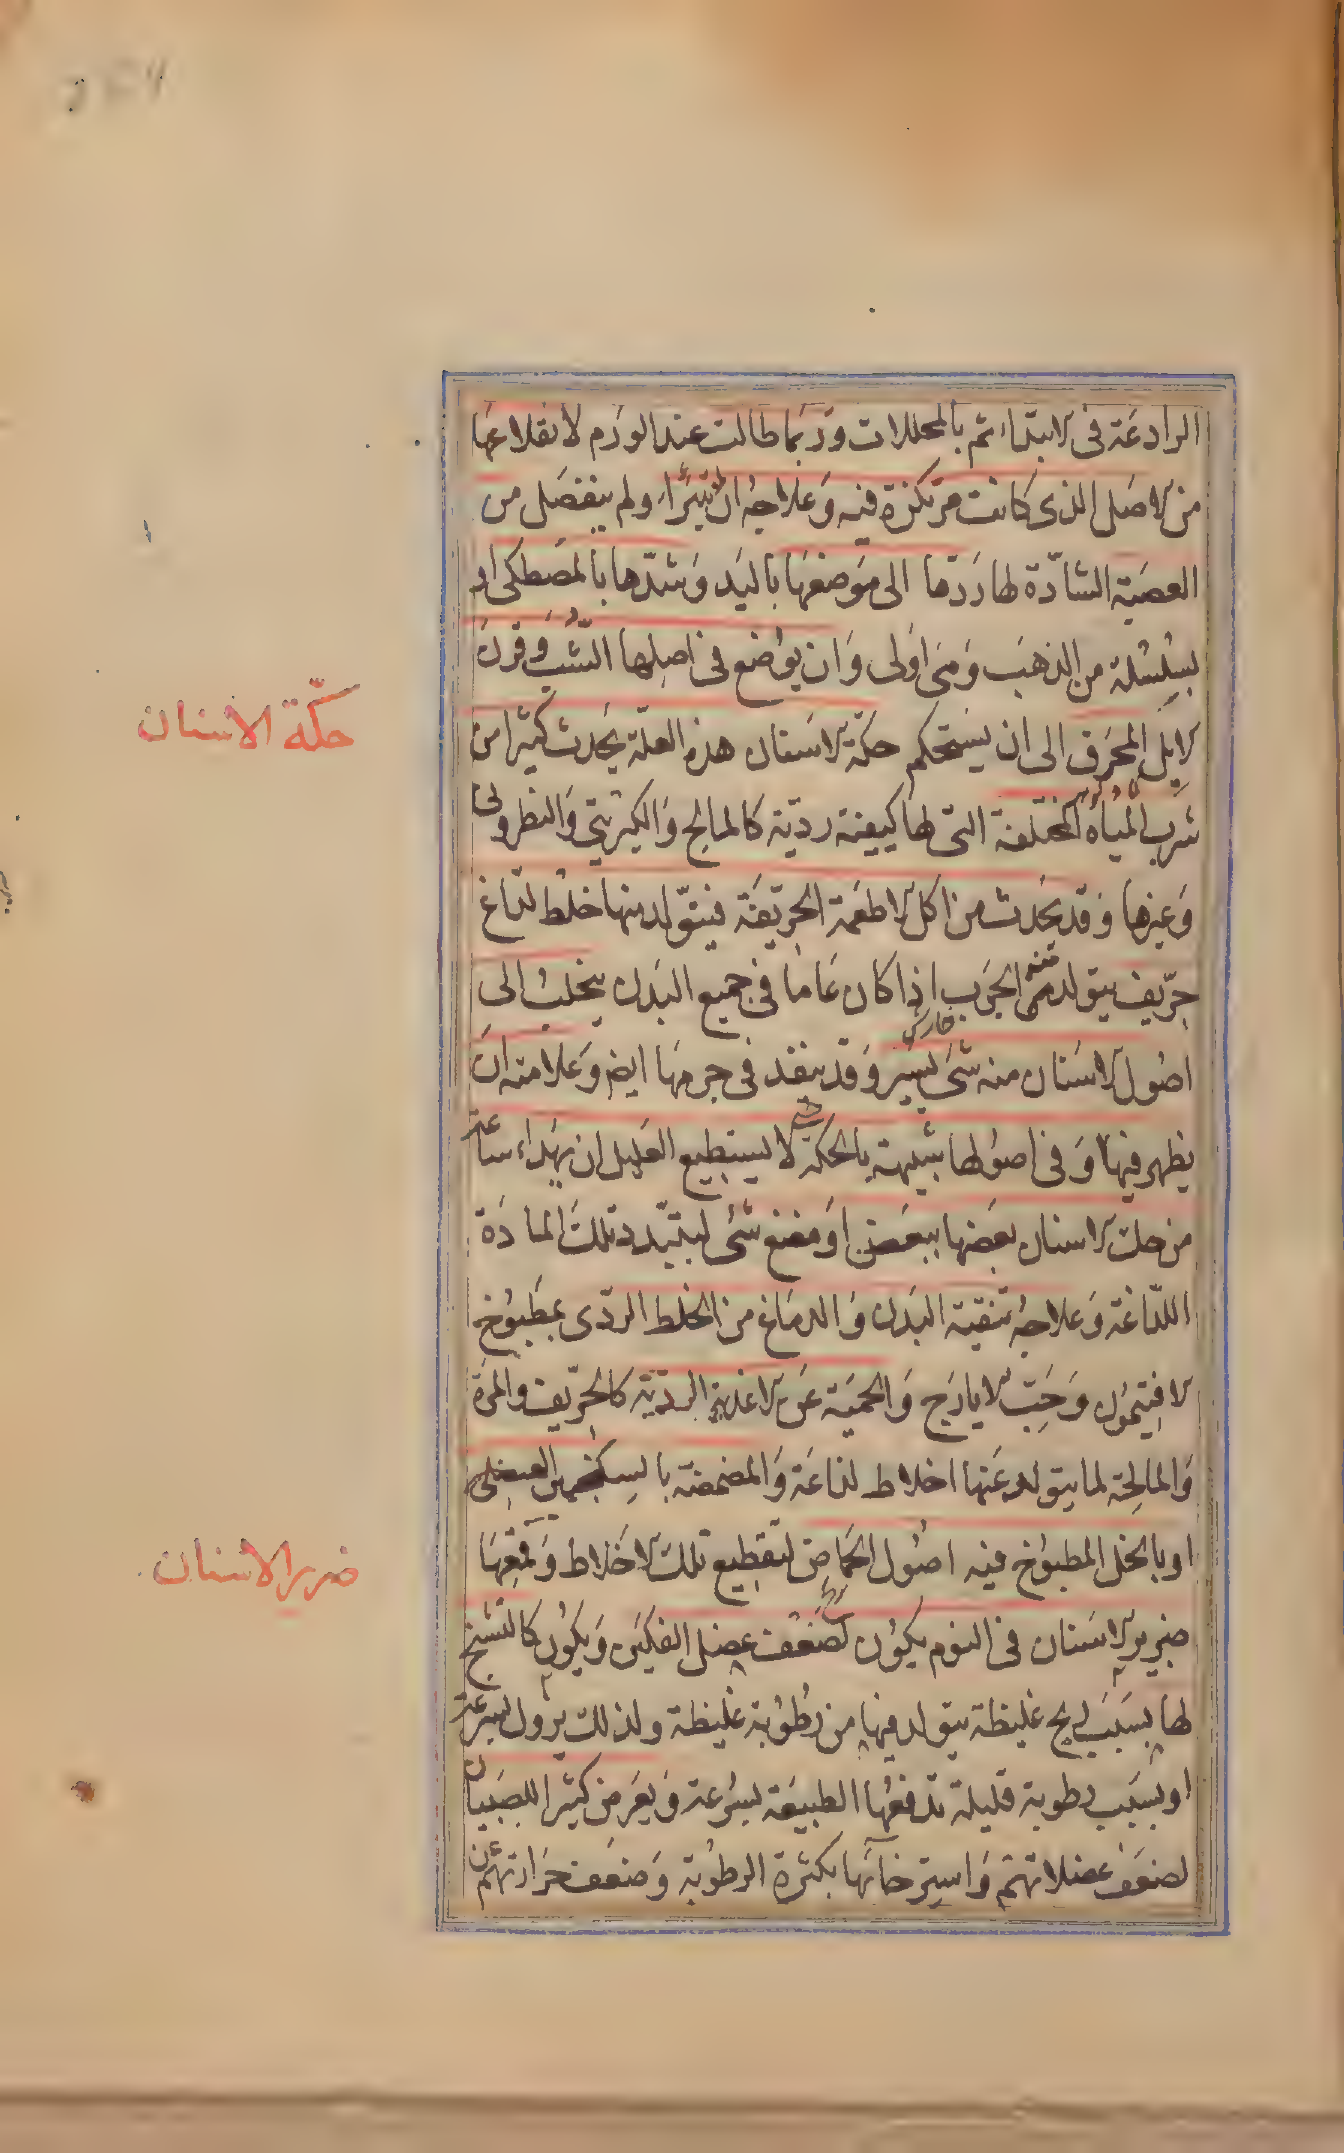 الرادعة في الابتداء ثم بالمحللات وربما طالت عند الورم لانقلاعها
من الاصل الذى كانت مرتكزة فيه وعلاجه ان تبرأ ولم ينفصل من
العصبة الشادّة لها ردّها الى موضعها باليد وشدّها بالمصطكى او
بسلسلة من الذهب وهى اولى وان يواضع فى اصلها الشب وقرن
الايل المحرق الى ان يستحكم حكّة الاسنان هذه العلّة يحدث كثيرا من
شرب المياه المختلفة التى لها كيفية رديّة كالمالح والكبريتى والنطرونى
وغيرها وقد يحدث من اكل الاطعمة الحريفة فيتولد منها خلط لذاغ
حرّيف يتولد منه الجرب اذا كان عاما فى جميع البدن يتحلب الى
اصول الاسنان منه شئ يسير وقد ينفد فى جرمها ايض وعلامته ان
يظهر فيها وفى اصولها شبيهة بالحكة لا يستطيع العليل ان يهداء ساعة
من حك الاسنان بعضها ببعض او مضغ شئ ليتبدد تلك المادة
اللذاغة وعلاجه تنقية البدن والدماغ من الخلط الردى بمطبوخ
الافتيمون وحبّ الايارج والحمية عن الاغذية الرديّة كالحرّيف والمرّة
والمالحة لما يتولد عنها اخلاط لذاعة والمضمضة بالسكنجبين العنصلى
او بالخل المطبوخ فيه اصول الحماض لتقطيع تلك الاخلاط وقمعها
ضرير الاسنان فى النوم يكون لضعف عضل الفكين ويكون كالتشنج
لها بسبب ريح غليظة يتولد فيها من رطوبة غليظة ولذلك يزول بسرعة
او بسبب رطوبة قليلة تدفعها الطبيعة بسرعة ويعرض كثيرا للصبيان
لضعف عضلاتهم واسترخائها بكثرة الرطوبة وضعف حرارتهم
حكّة الاسنان
ضرير الاسنان